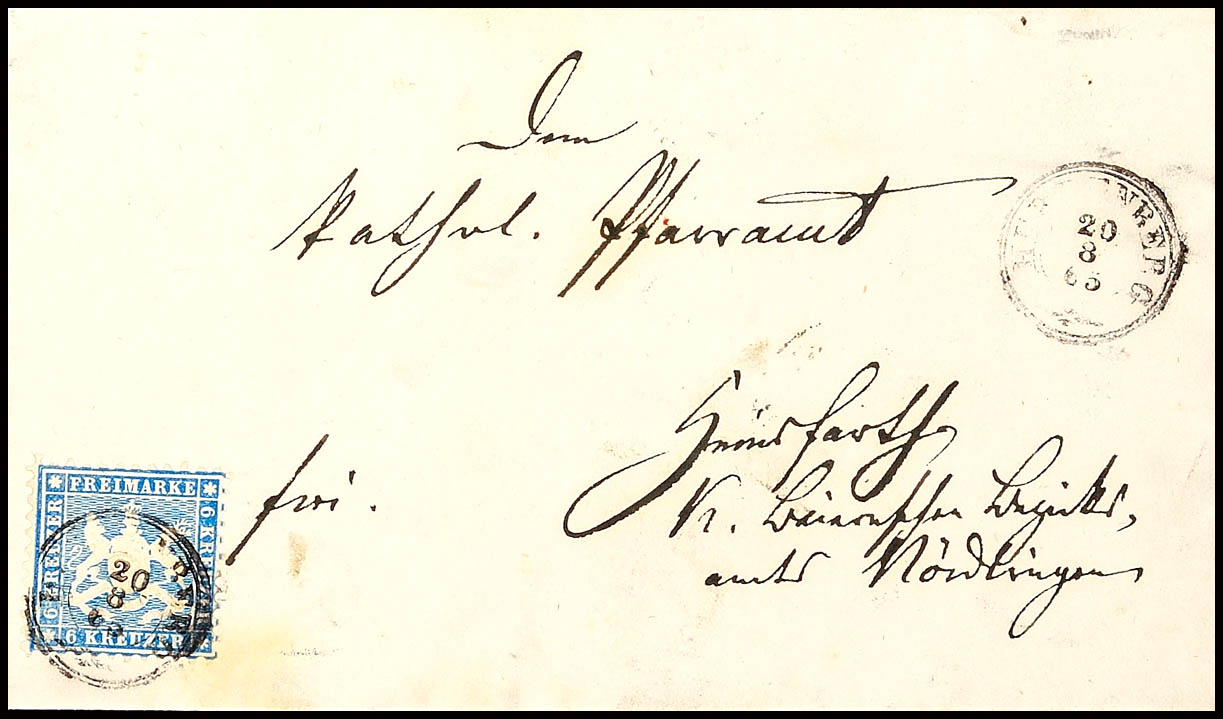 Dem
Kathol. Pfarramt
Heinsfarth
frei.
K. Baierischen Bezirks-
amts Nördlingen
20
8
65
FREIMARKE
6 KREUZER
6 KREUZER
6 KREUZER
20
8